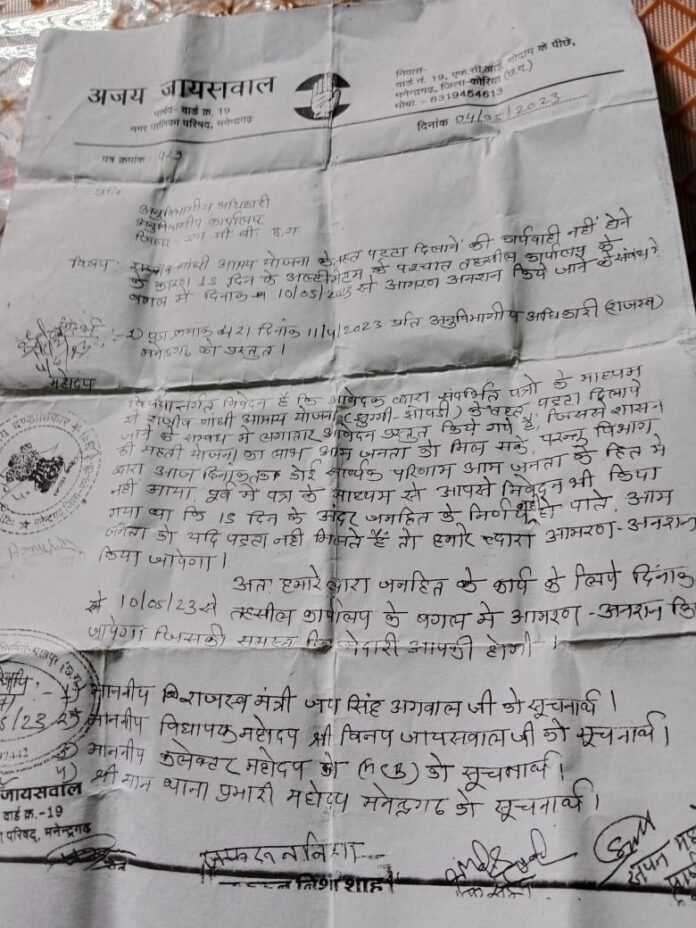 अजय जायसवाल
पार्षद- वार्ड क्र. 19
नगर पालिका परिषद, मनेन्द्रगढ़
निवास-
वार्ड नं. 19, एफ.सी.आई. गोदाम के पीछे,
मनेन्द्रगढ़, जिला-कोरिया (छ.ग.)
मोबा. - 8319454613
पत्र क्रमांक 429
दिनांक 04/05/2023
प्रति
अनुविभागीय अधिकारी
अनुविभागीय कार्यालय
जिला- एम.सी.बी. छ.ग.
विषय:- राजीव गांधी आश्रय योजना के तहत पट्टा दिलाने की कार्यवाही नहीं होने
के कारण 15 दिन के अल्टीमेटम के पश्चात तहसील कार्यालय के
बगल में दिनांक 10/05/2023 से आमरण अनशन किये जाने के संबंध में
संदर्भ:-1) पत्र क्रमांक 421 दिनांक 11/4/2023 प्रति अनुविभागीय अधिकारी (राजस्व)
मनेन्द्रगढ़ को प्रस्तुत।
महोदय
विषयान्तर्गत निवेदन है कि आवेदक द्वारा संदर्भित पत्रो के माध्यम
से राजीव गांधी आश्रय योजना (झुग्गी-झोपडी) के तहत पट्टा दिलाये
जाने के सम्बंध में लगातार आवेदन प्रस्तुत किये गये है, जिससे शासन
की महती योजना का लाभ आम जनता को मिल सके, परन्तु विभाग
द्वारा आज दिनांक तक कोई सार्थक परिणाम आम जनता के हित मे
नही आया, पूर्व में पत्र के माध्यम से आपसे निवेदन भी किया
गया था कि 15 दिन के अंदर जनहित के निर्णय नही हो पाते, आम
जनता को यदि पट्टा नही मिलते हैं तो हमारे द्वारा आमरण-अनशन
किया जायेगा।
अतः हमारे द्वारा जनहित के कार्य के लिये दिनांक
10/05/23 से तहसील कार्यालय के बगल मे आमरण-अनशन कि
जायेगा जिसकी समस्त जिम्मेदारी आपकी होगी।
1) माननीय राजस्व मंत्री जय सिंह अग्रवाल जी को सूचनार्थ।
2) माननीय विधायक महोदय श्री विनय जायसवाल जी को सूचनार्थ।
3) माननीय कलेक्टर महोदय को (MCB) को सूचनार्थ।
4) श्री मान थाना प्रभारी महोदय मनेन्द्रगढ को सूचनार्थ।
जायसवाल
वार्ड क्र.-19
परिषद, मनेन्द्रगढ